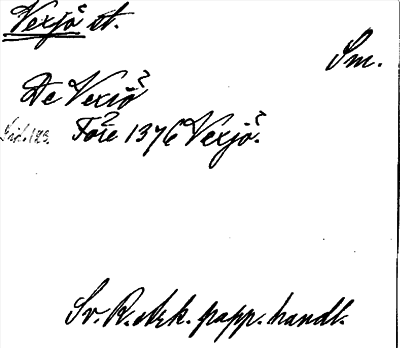 Vexjö st.
Sm.
De Vexiö
Före 1376 Vexjö.
Sv. R. Ark. papp. handl.